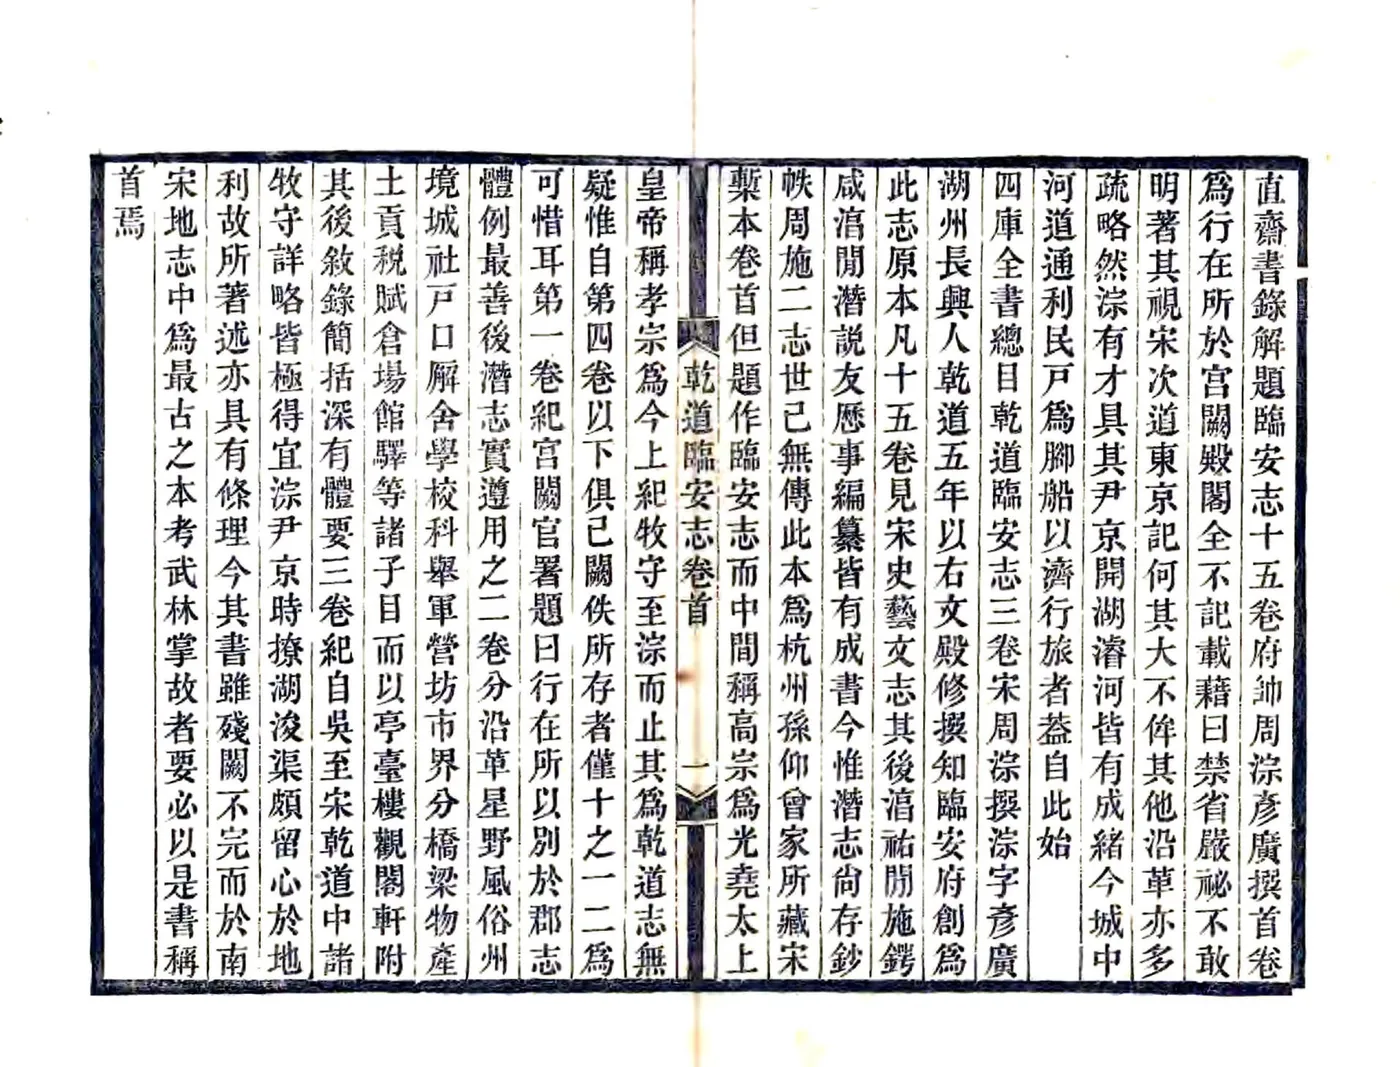 直齋書錄解題臨安志十五卷府帥周淙彥廣撰首卷
爲行在所於宫闕殿閣全不記載藉曰禁省嚴祕不敢
明著其視宋次道東京記何其大不侔其他沿革亦多
疏略然淙有才具其尹京開湖濬河皆有成緒今城中
河道通利民戸爲腳船以濟行旅者葢自此始
四庫全書總目乾道臨安志三卷宋周淙撰淙字彥廣
湖州長興人乾道五年以右文殿修撰知臨安府創爲
此志原本凡十五卷見宋史藝文志其後淳祐閒施鍔
咸淳閒潛説友歷事編纂皆有成書今惟潛志尚存鈔
帙周施二志世已無傳此本爲杭州孫仰曾家所藏宋
槧本卷首但題作臨安志而中閒稱高宗爲光堯太上
乾道臨安志卷首
一
皇帝稱孝宗爲今上紀牧守至淙而止其爲乾道志無
疑惟自第四卷以下俱已闕佚所存者僅十之一二爲
可惜耳第一卷紀宫闕官署題曰行在所以别於郡志
體例最善後潛志實遵用之二卷分沿革星野風俗州
境城社戸口廨舍學校科舉軍營坊市界分橋梁物產
土貢稅賦倉場館驛等諸子目而以亭臺樓觀閣軒附
其後敘錄簡括深有體要三卷紀自吳至宋乾道中諸
牧守詳略皆極得宜淙尹京時撩湖浚渠頗留心於地
利故所著述亦具有條理今其書雖殘闕不完而於南
宋地志中爲最古之本考武林掌故者要必以是書稱
首焉